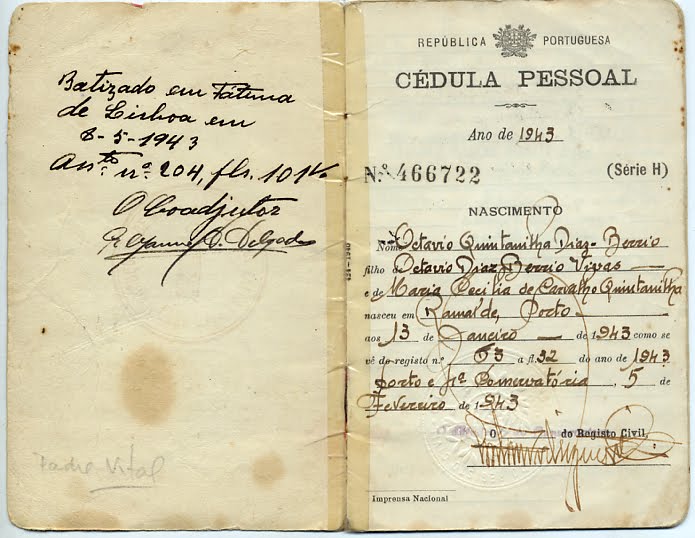 Batizado em Fátima
de Lisboa em
8-5-1943
Ass.to nº 204, fls. 101v
O Coadjutor
Delgado
Padre Vital
REPÚBLICA PORTUGUESA
CÉDULA PESSOAL
Ano de 1943
N.º 466722 (Série H)
NASCIMENTO
Nome Octavio Quintanilha Diaz-Berrio
filho de Octavio Diaz Berrio Vivas
e de Maria Cecilia de Carvalho Quintanilha
nasceu em Ramalde, Porto
aos 13 de Janeiro de 1943 como se
vê do registo n.º 63 a fl. 32 do ano de 1943
Porto e 1ª Conservatória, 5 de
Fevereiro de 1943
O do Registo Civil,
Imprensa Nacional